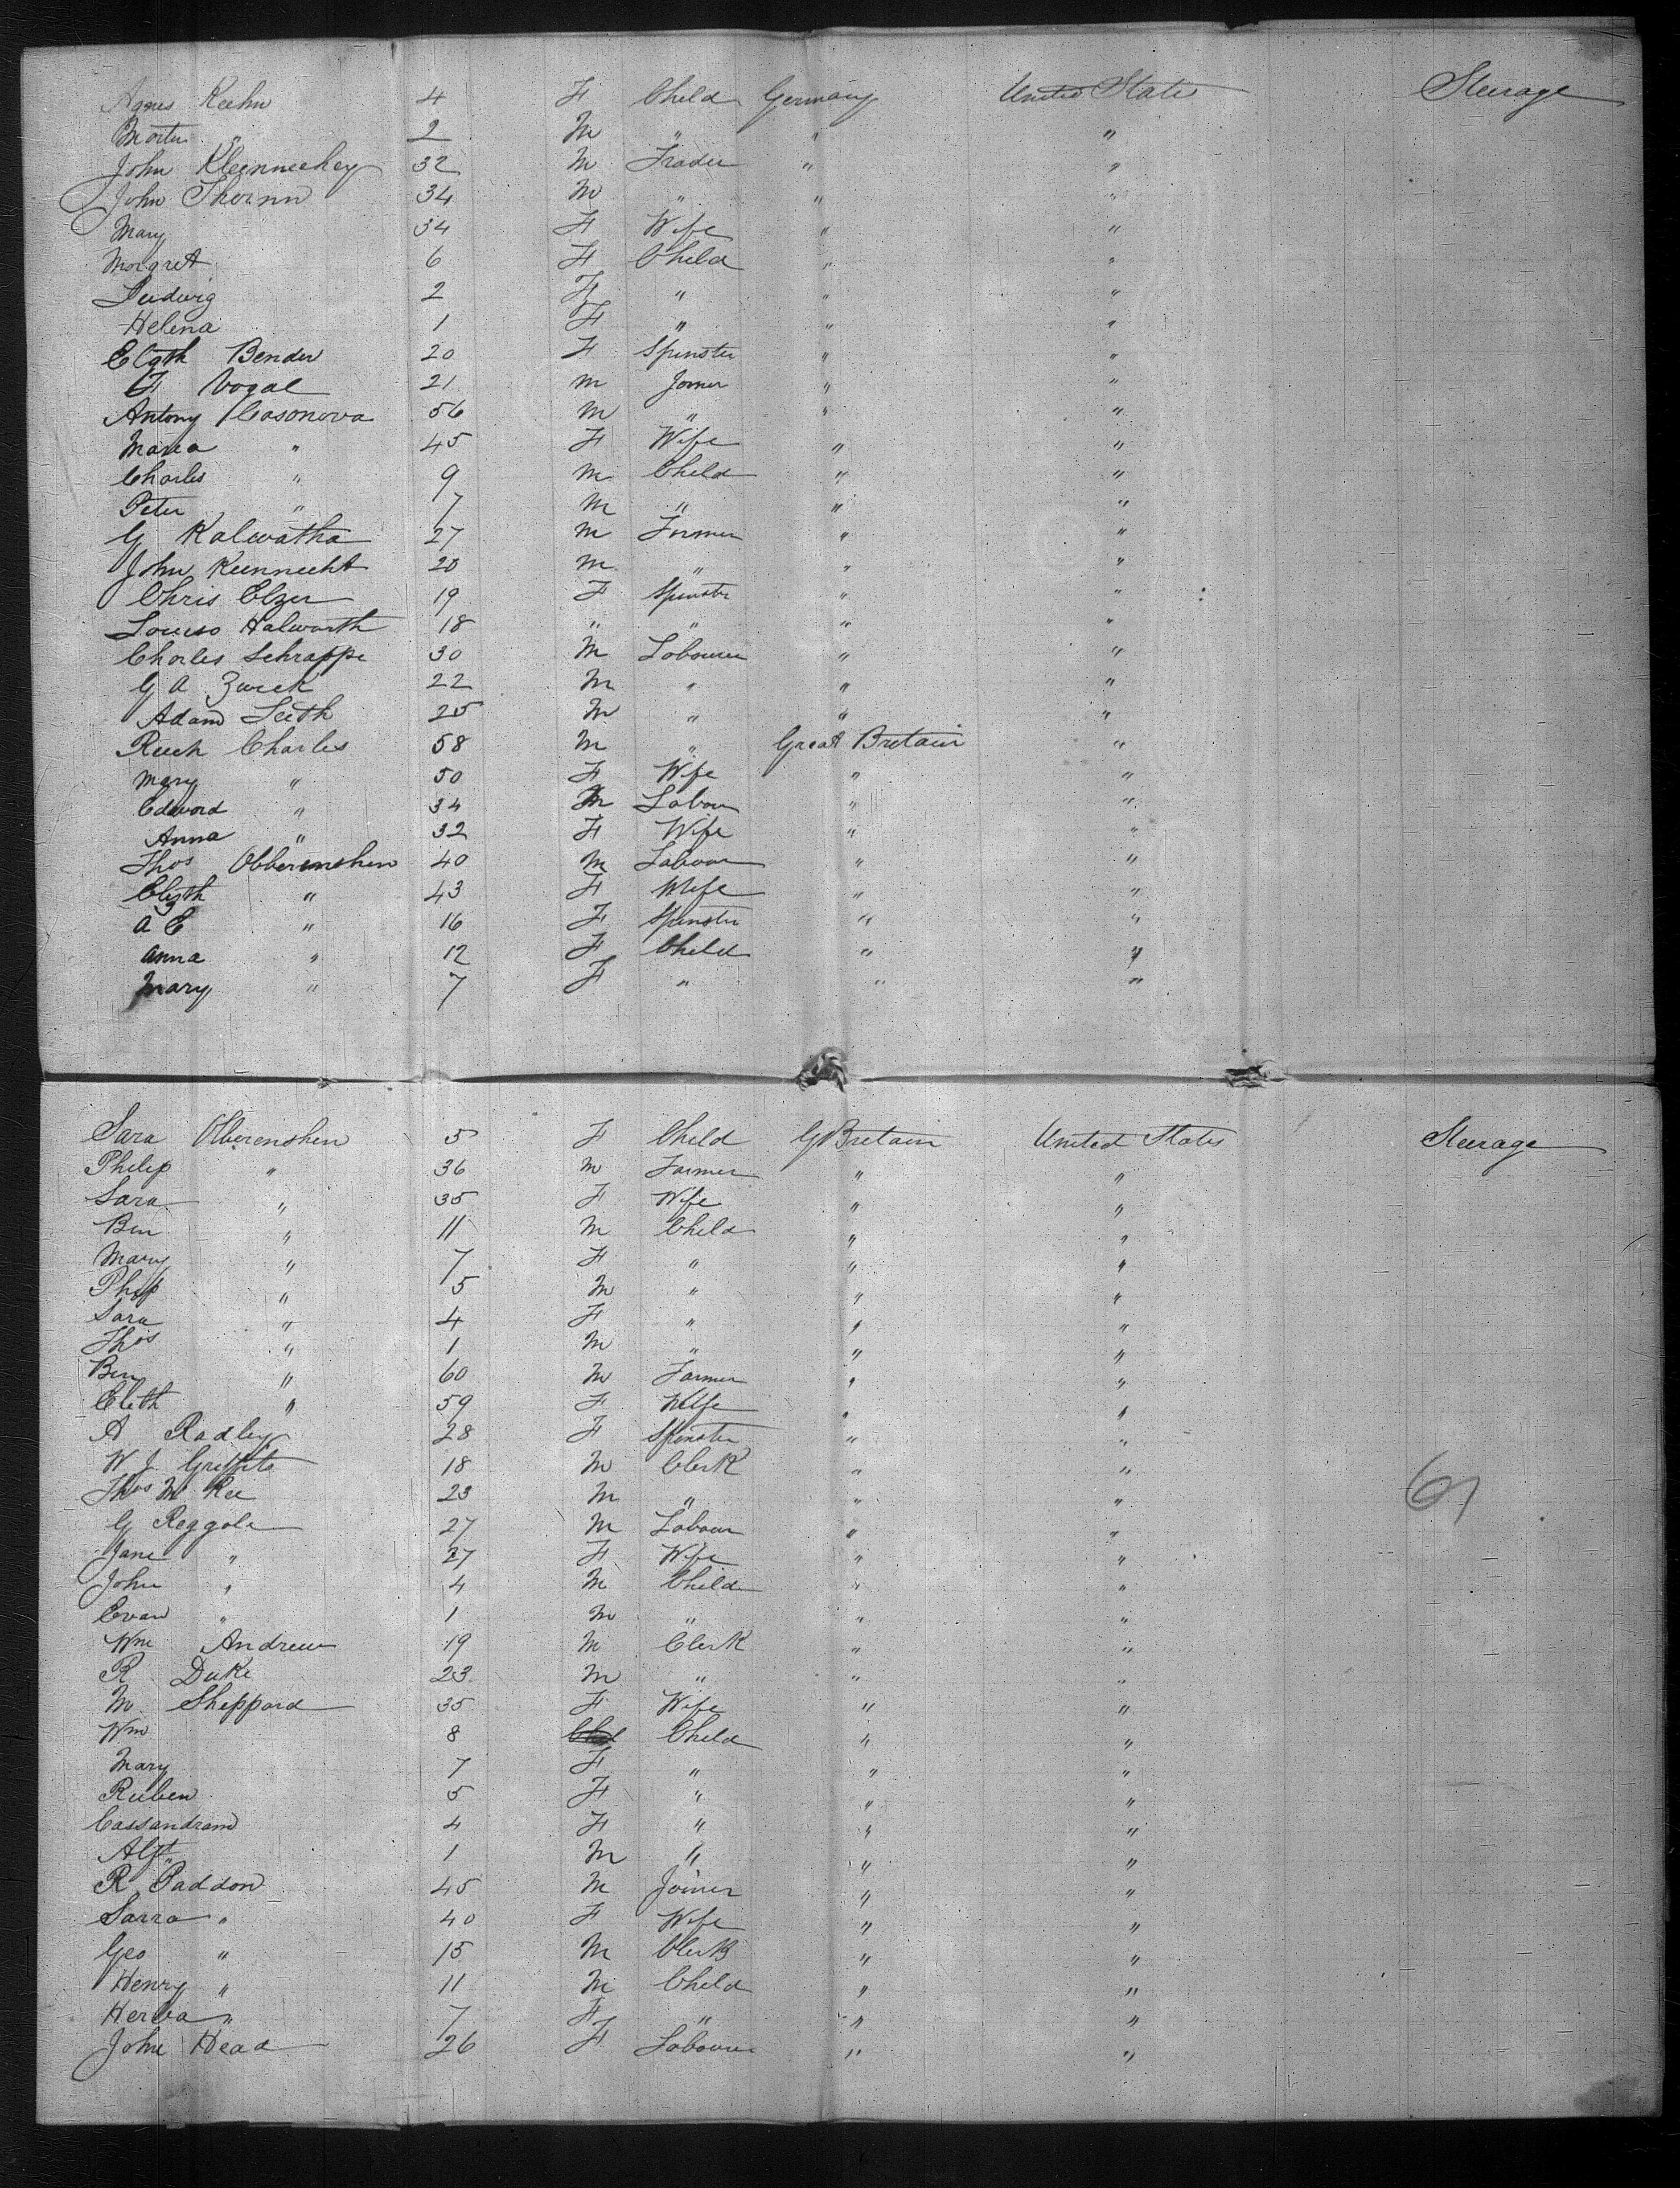 Agnes Kuhn 4 F Child Germany United States Steerage
Morter " 2 M " " "
John Kleinneckey 32 M Trader " "
John Thornn 34 M " " "
Mary 34 F Wife " "
Morgret 6 F Child " "
Ludwig 2 F " " "
Helena 1 F " " "
Elgth Bender 20 F Spinster " "
F Vogal 21 M Joiner " "
Antony Casonova 56 M " " "
Maria " 45 F Wife " "
Charles " 9 M Child " "
Peter " 7 M " " "
G Kalwatha 27 M Farmer " "
John Kennecht 20 M " " "
Chris Elzer 19 F Spinster " "
Louiso Halworth 18 " " " "
Charles Schrappe 30 M Labourer " "
G A Zwick 22 M " " "
Adam Leith 25 M " " "
Ruch Charles 58 M " Great Britain "
Mary " 50 F Wife " "
Edward " 34 M Labour " "
Anna " 32 F Wife " "
Thos Obberenshen 40 M Labour " "
Elizth " 43 F Wife " "
A E " 16 F Spinster " "
Anna " 12 F Child " "
Mary " 7 F " " "
Sara Obberenshen 5 F Child G Britain United States Steerage
Philip " 36 M Farmer " "
Sara " 35 F Wife " "
Ben " 11 M Child " "
Mary " 7 F " " "
Phip " 5 M " " "
Sara " 4 F " " "
Thos " 1 M " " "
Ben " 60 M Farmer " "
Elith " 59 F Wife " "
A Radley 28 F Spinster " "
W J Griffits 18 M Clerk " "
Thos Mc Kee 23 M " " "
G Reggole 27 M Labour " "
Jane " 27 F Wife " "
John " 4 M Child " "
Evan " 1 M " " "
Wm Andrew 19 M Clerk " "
R Duke 23 M " " "
M Sheppard 35 F Wife " "
Wm 8 Child " "
Mary 7 F " " "
Ruben 5 F " " "
Cassandram 4 F " " "
Alft 1 M " " "
R Paddon 45 M Joiner " "
Sarra " 40 F Wife " "
Geo " 15 M Clerk " "
Henry " 11 M Child " "
Herva " 7 F " " "
John Head 26 F Labourer " "